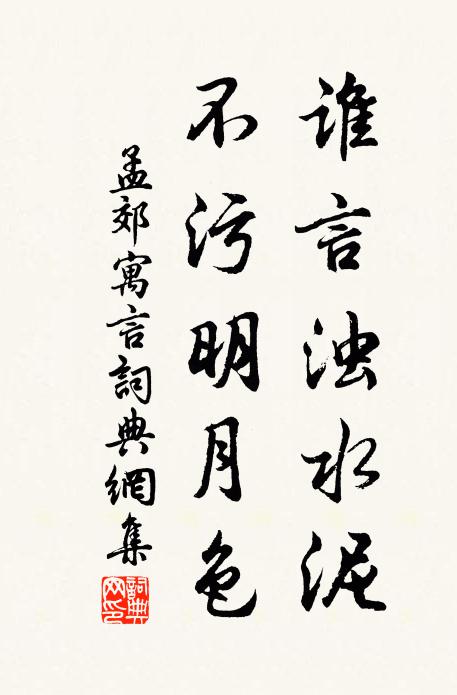 谁言浊水泥
不污明月色
孟郊寓言詞典網集
詞典网印